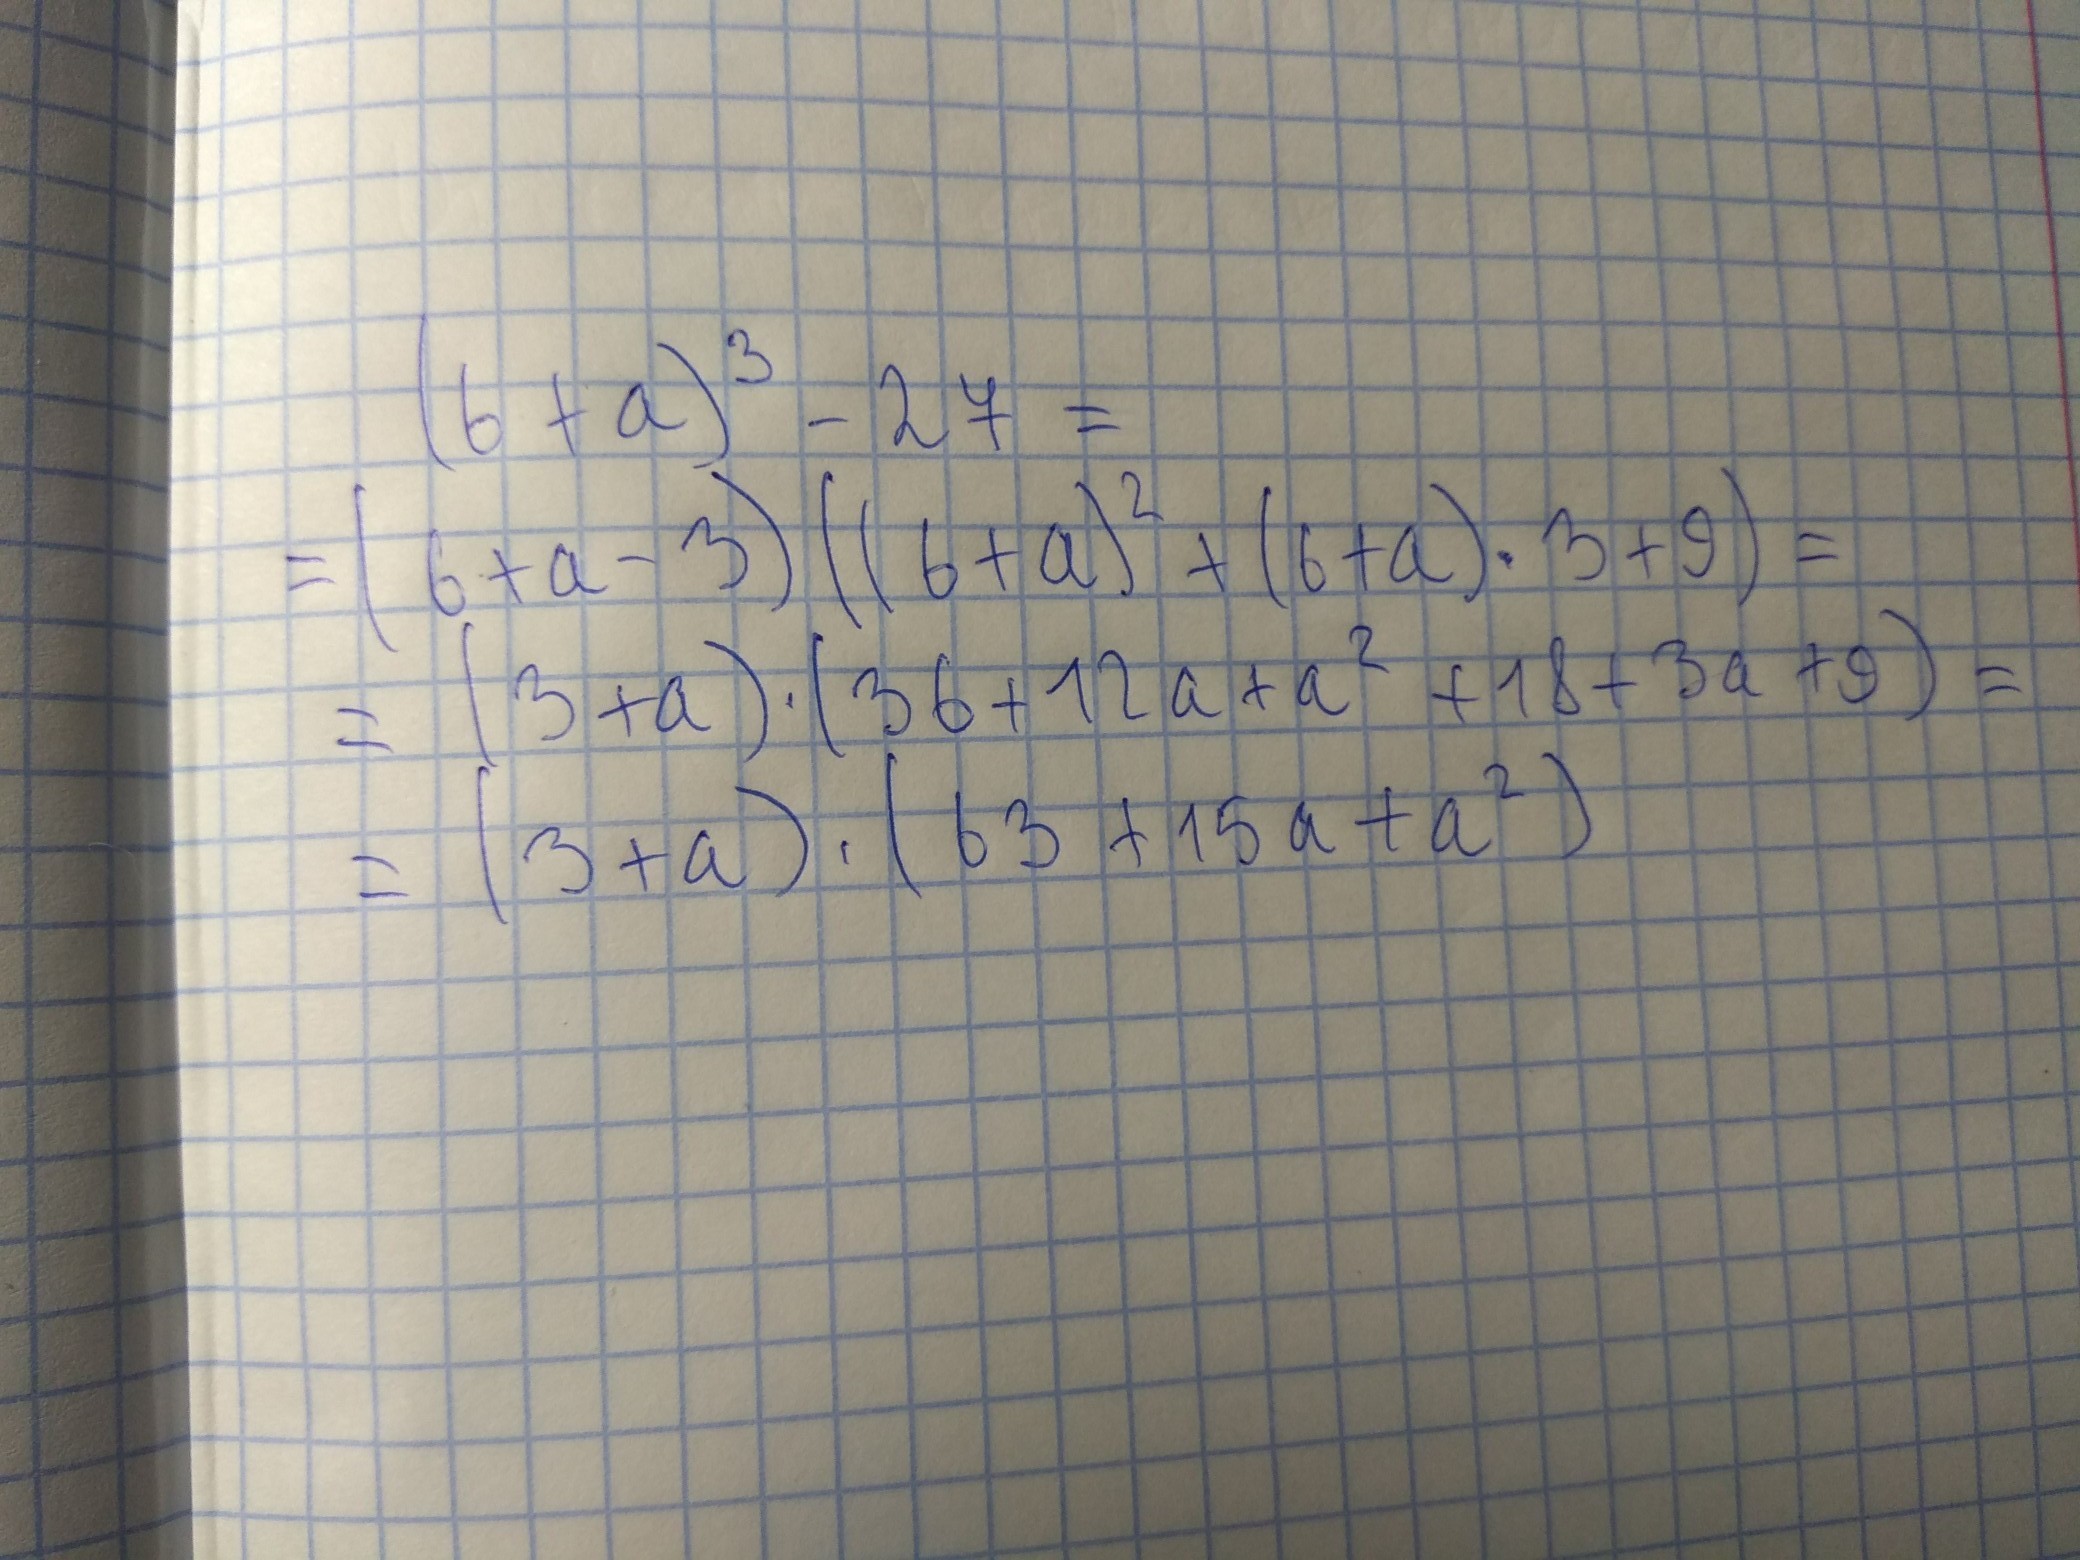 (6+a)³ - 27 =
= (6+a-3)((6+a)² + (6+a)·3+9) =
= (3+a)·(36+12a+a² +18+3a+9) =
= (3+a)·(63+15a+a²)